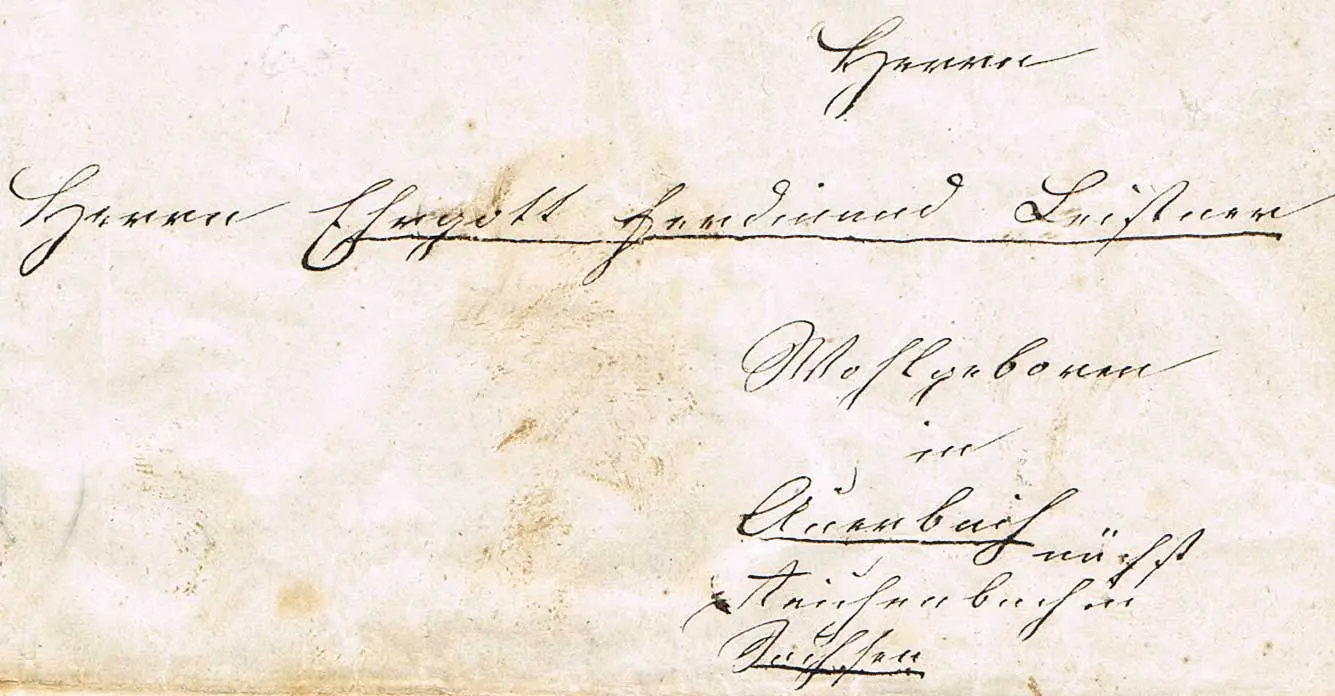 Herrn
Herrn Ehrgott Ferdinand Leistner
Wohlgeboren
in
Auerbach
nächst
Reichenbach in
Sachsen